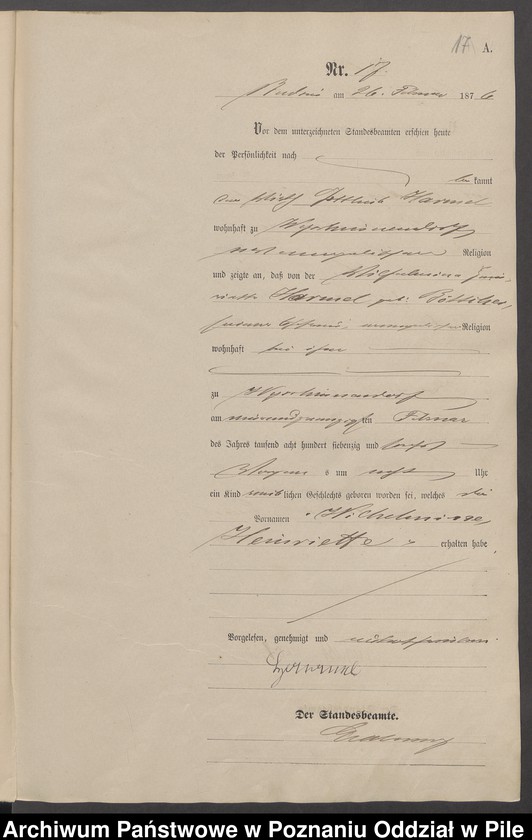 17 A.
Nr. 17.
am 26. Februar 1876
Vor dem unterzeichneten Standesbeamten erschien heute
der Persönlichkeit nach
be kannt
der Gottlieb Harmel
wohnhaft zu
evangelischer Religion
und zeigte an, daß von der Wilhelmine Hen-
riette Harmel geb.
seiner Ehefrau, evangelischer Religion
wohnhaft bei ihm
zu
am ten Februar
des Jahres tausend acht hundert siebenzig und sechs
Morgen s um acht Uhr
ein Kind weib lichen Geschlechts geboren worden sei, welches die
Vornamen "Wilhelmine
Henriette" erhalten habe
Vorgelesen, genehmigt und unterschrieben.
Harmel
Der Standesbeamte.
Archiwum Państwowe w Poznaniu Oddział w Pile